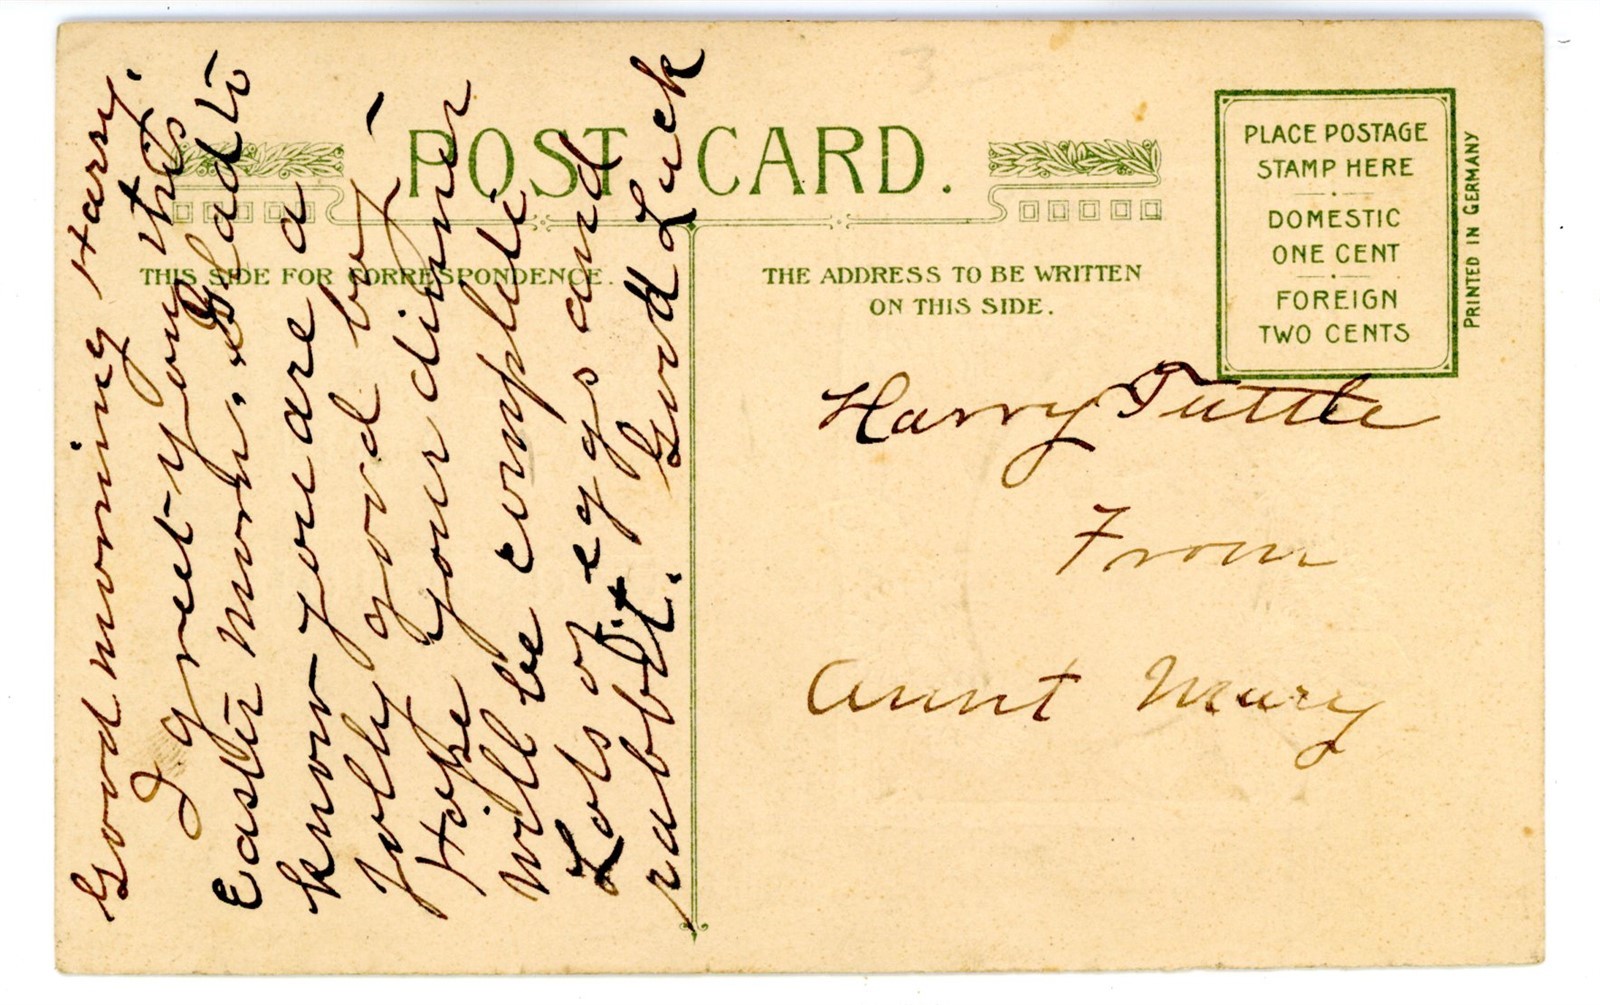 POST CARD.
THIS SIDE FOR CORRESPONDENCE.
THE ADDRESS TO BE WRITTEN
ON THIS SIDE.
PLACE POSTAGE
STAMP HERE
DOMESTIC
ONE CENT
FOREIGN
TWO CENTS
PRINTED IN GERMANY
Good morning Harry.
I greet you this
Easter morn. Glad to
know you are a
jolly good boy -
Hope your dinner
will be complete
Lots of eggs and
rabbit. Good Luck
Harry Tuttle
From
Aunt Mary
3